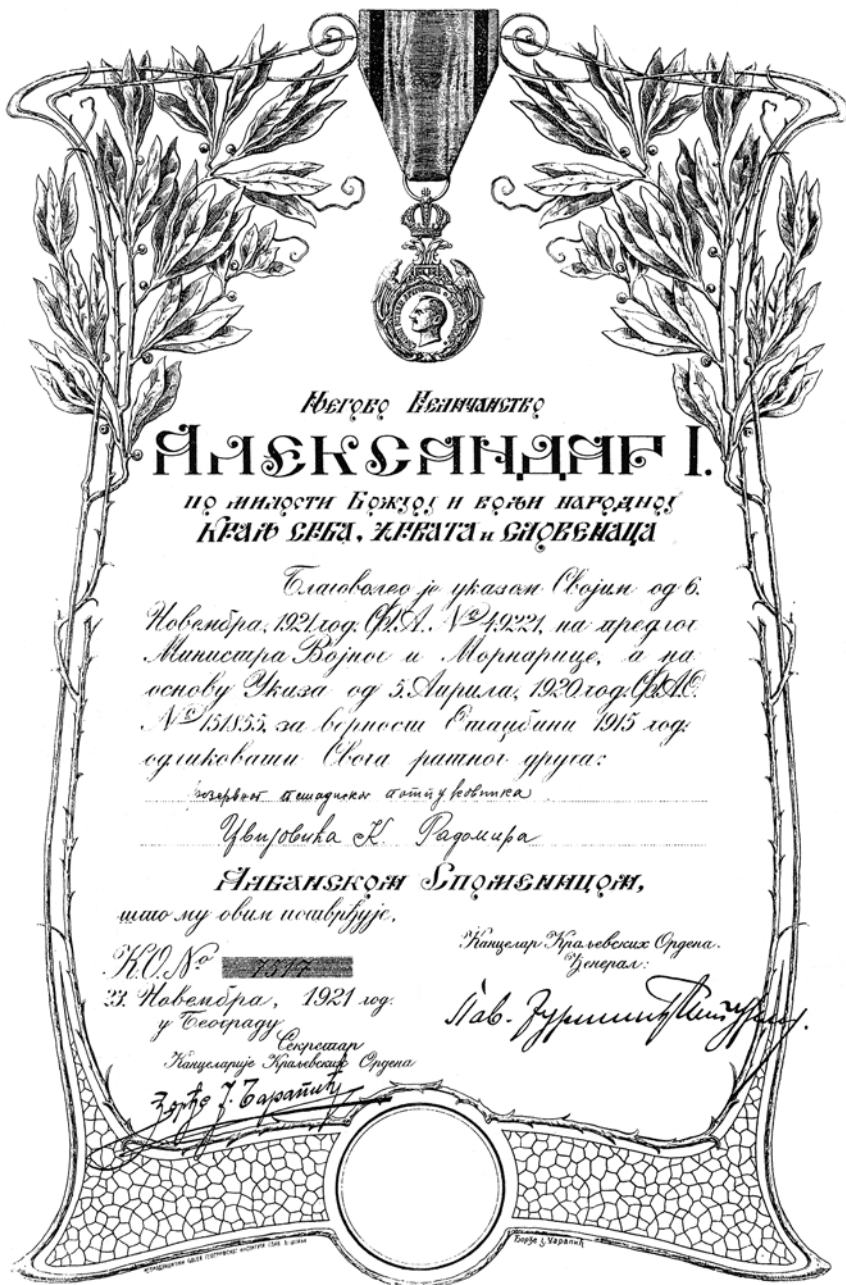 Његово Величанство
АЛЕКСАНДАР I.
по милости Божјој и вољи народној
КРАЉ СРБА, ХРВАТА и СЛОВЕНАЦА
Благоволео је указом Својим од 6.
Новембра, 1921 год. Ф.А. № 49221, на предлог
Министра Војног и Морнарице, а на
основу Указа од 5. Априла, 1920 год. Ф.А.О.
№ 151855, за верност Отаџбини 1915 год.
одликовати Свога ратног друга:
резервног пешадиског потпуковника
Цвијовића К. Радомира
Албанском Споменицом,
што му овим потврђује.
Канцелар Краљевских Ордена.
Ђенерал:
К.О. № 7517
23. Новембра, 1921 год.
у Београду
Секретар
Канцеларије Краљевских Ордена
Пав. Јуришић